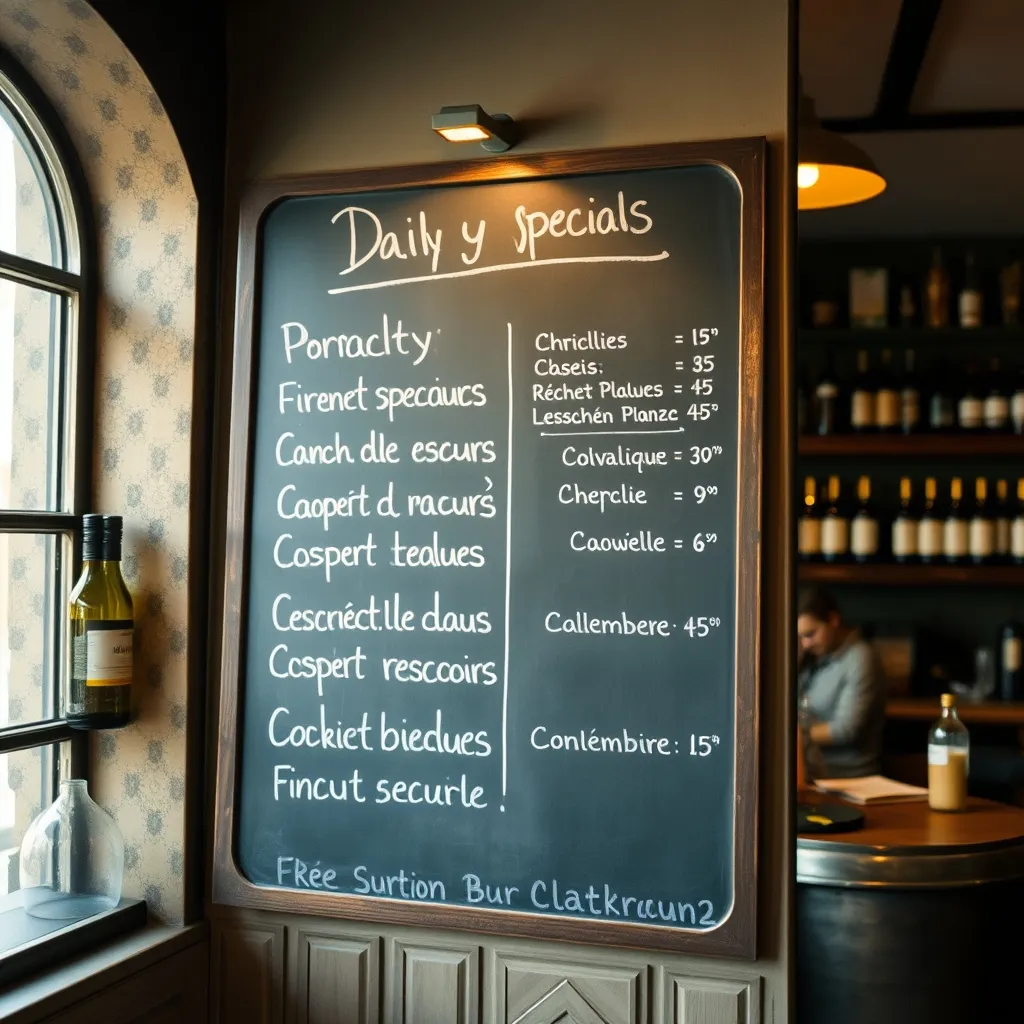 Daily y Specials
Porraclty
Firenet specáurs
Canch dlle escurs
Caopért d racurs
Cospert tealues
Cescréct.lle daus
Cospert rescoirs
Cockiet biedues
Fincut securle.
Chricllies = 15
Caseis: = 35
Réchet Plalues = 45
Lesschén Planzc 45
Colvalique = 30
Cherclie = 9
Caowelle = 6
Callembere· 45
Conlémbire: 15
FRée Surtion Bur Clatkrcun2